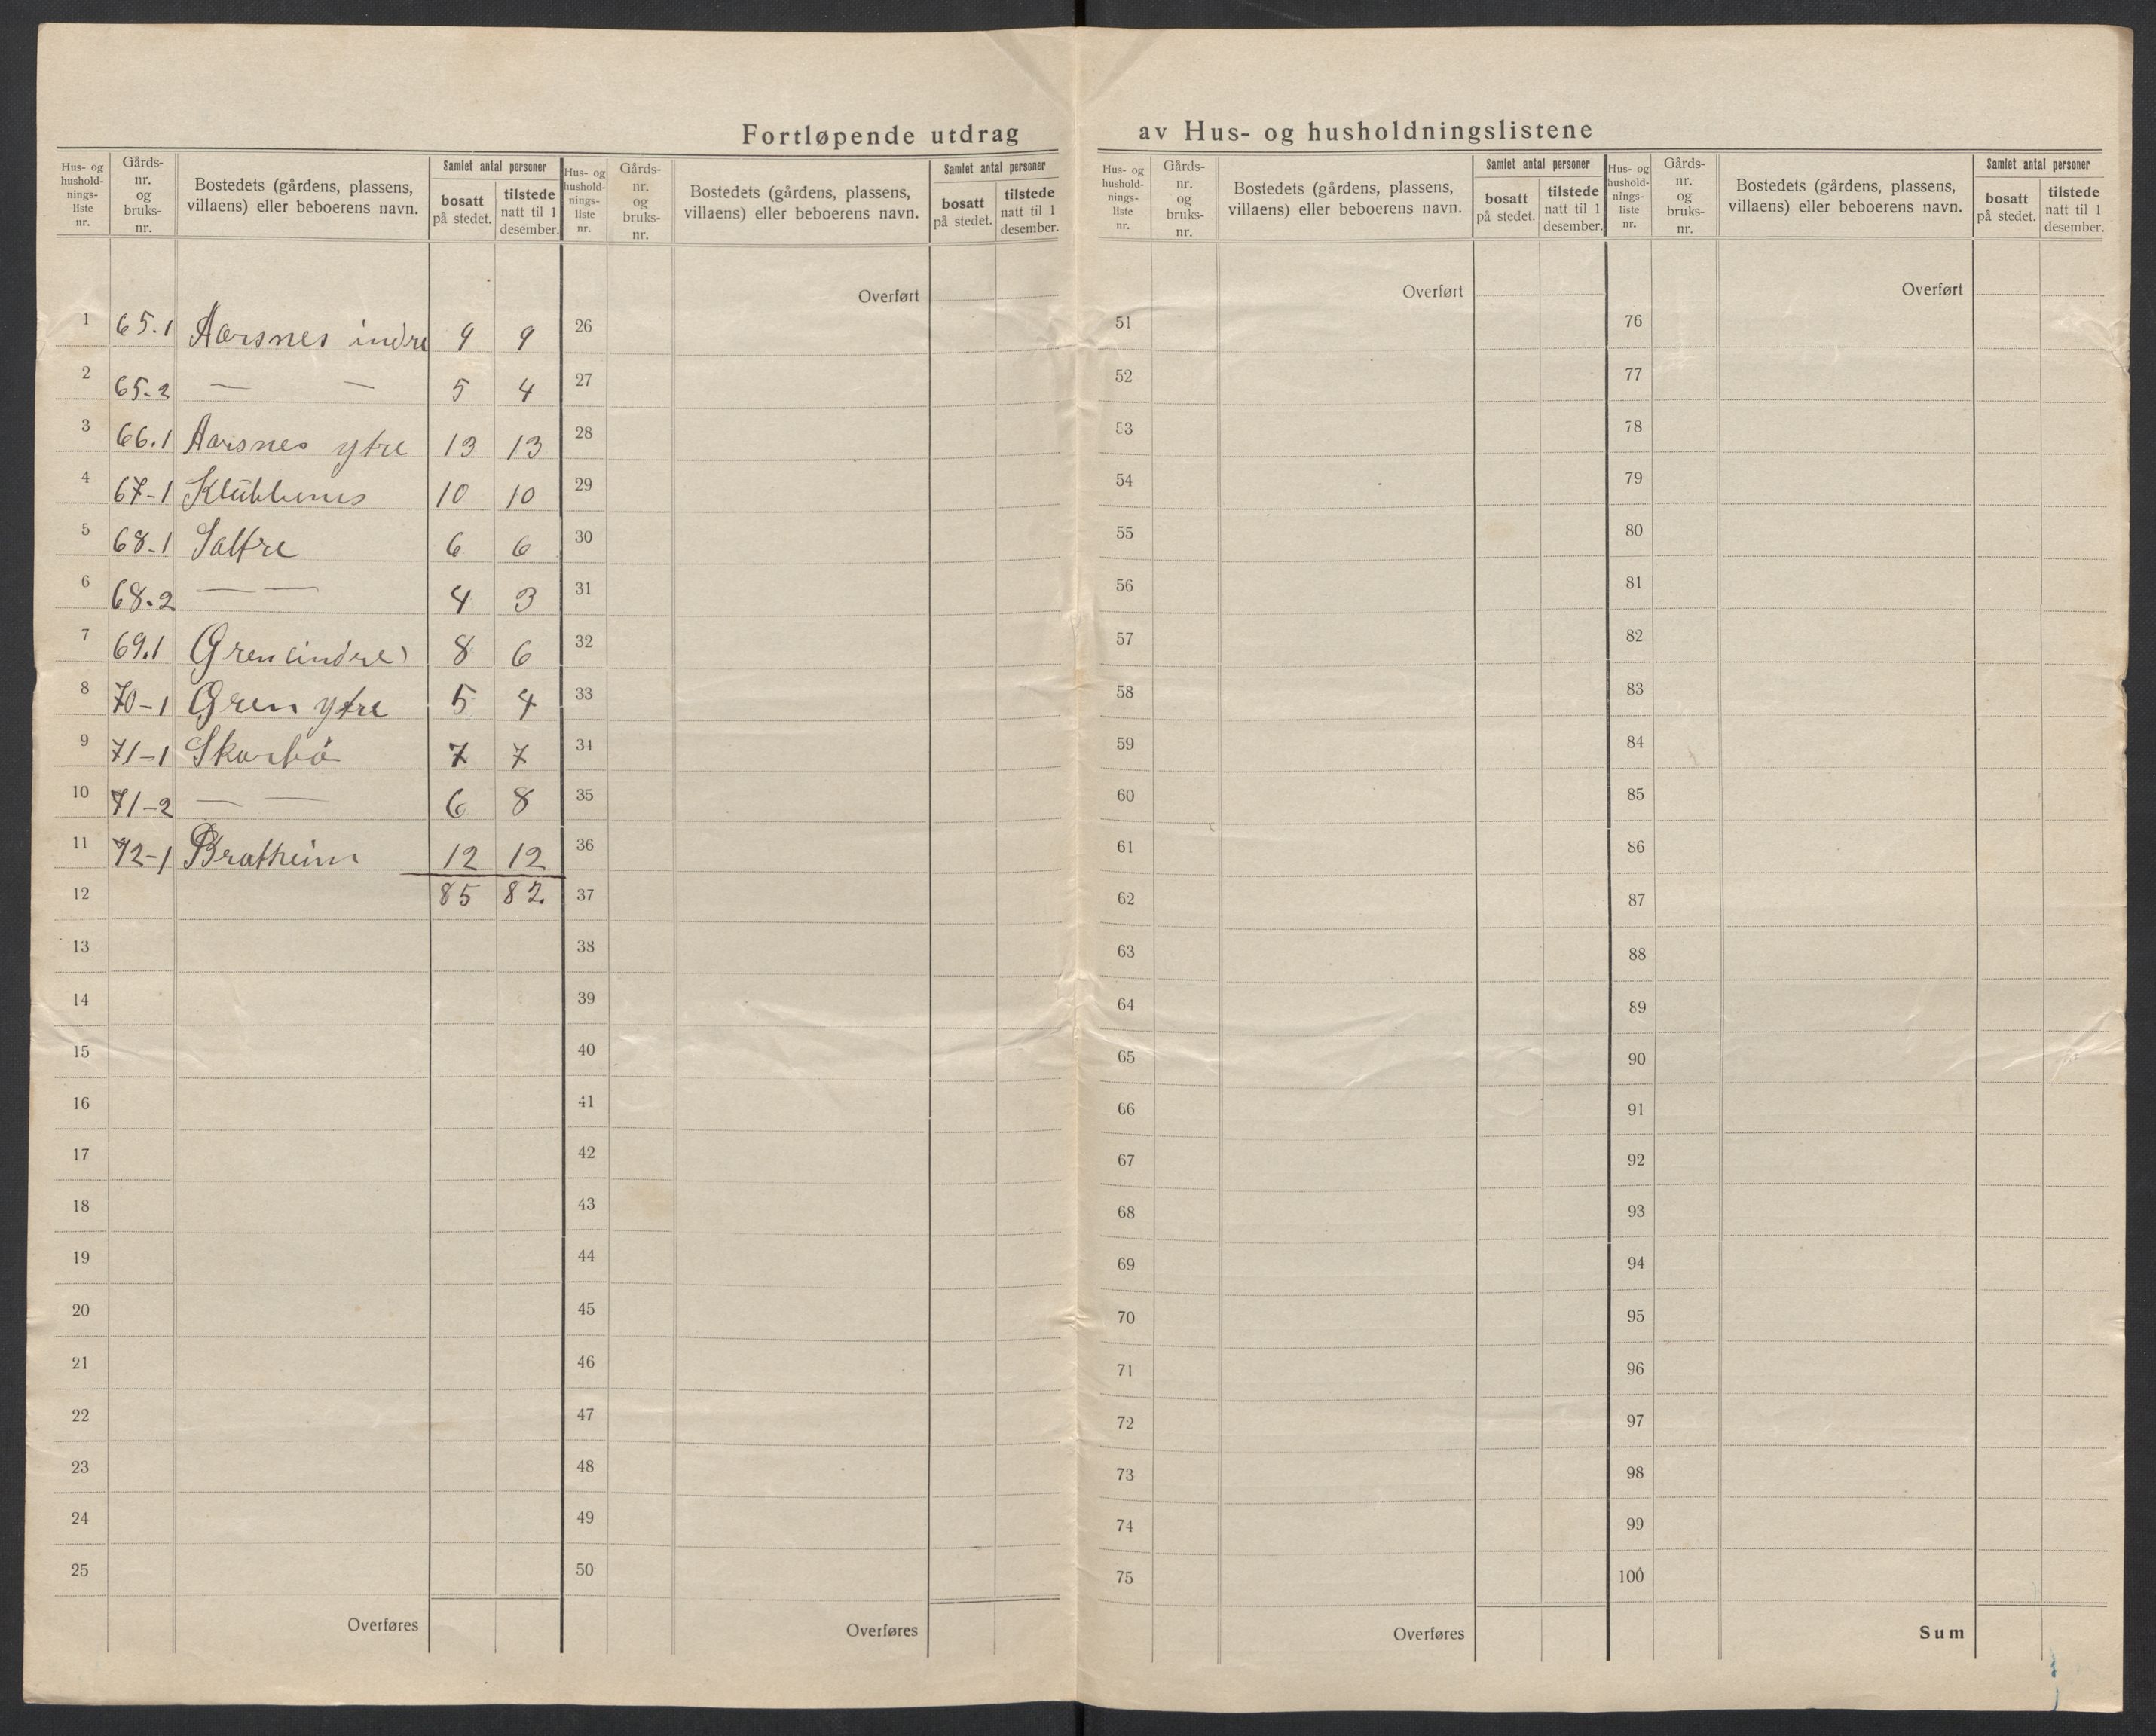 Fortløpende utdrag av Hus- og husholdningslistene
Hus- og hushold-nings-liste nr. | Gårds-nr. og bruks-nr. | Bostedets (gårdens, plassens, villaens) eller beboerens navn. | Samlet antal personer | bosatt på stedet. | tilstede natt til 1 desember.
1 65.1 Aarsnes indre 9 9
2 65.2 — — 5 4
3 66.1 Aarsnes ytre 13 13
4 67-1 Klubbenes 10 10
5 68-1 6 6
6 68.2 — — 4 3
7 69.1 Gren (indre) 8 6
8 70-1 Gren ytre 5 4
9 71-1 Skarbö 7 7
10 71-2 — — 6 8
11 72-1 Bratheim 12 12
12 85 82.
13
14
15
16
17
18
19
20
21
22
23
24
25
Overføres
Hus- og hushold-nings-liste nr. | Gårds-nr. og bruks-nr. | Bostedets (gårdens, plassens, villaens) eller beboerens navn. | Samlet antal personer | bosatt på stedet. | tilstede natt til 1 desember.
Overført
26
27
28
29
30
31
32
33
34
35
36
37
38
39
40
41
42
43
44
45
46
47
48
49
50
Overføres
Hus- og hushold-nings-liste nr. | Gårds-nr. og bruks-nr. | Bostedets (gårdens, plassens, villaens) eller beboerens navn. | Samlet antal personer | bosatt på stedet. | tilstede natt til 1 desember.
Overført
51
52
53
54
55
56
57
58
59
60
61
62
63
64
65
66
67
68
69
70
71
72
73
74
75
Overføres
Hus- og hushold-nings-liste nr. | Gårds-nr. og bruks-nr. | Bostedets (gårdens, plassens, villaens) eller beboerens navn. | Samlet antal personer | bosatt på stedet. | tilstede natt til 1 desember.
Overført
76
77
78
79
80
81
82
83
84
85
86
87
88
89
90
91
92
93
94
95
96
97
98
99
100
Sum